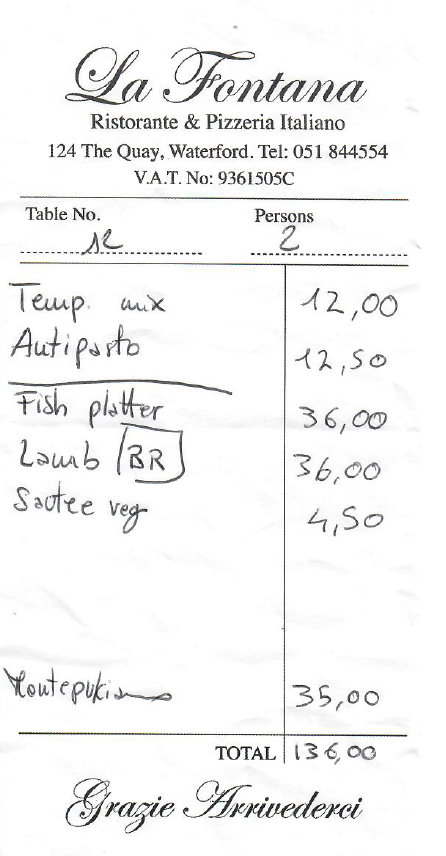 La Fontana
Ristorante & Pizzeria Italiano
124 The Quay, Waterford. Tel: 051 844554
V.A.T. No: 9361505C
Table No. Persons
12 2
Temp. mix 12,00
Antipasto 12,50
Fish platter 36,00
Lamb BR 36,00
Sautee veg 4,50
35,00
TOTAL 136,00
Grazie Arrivederci